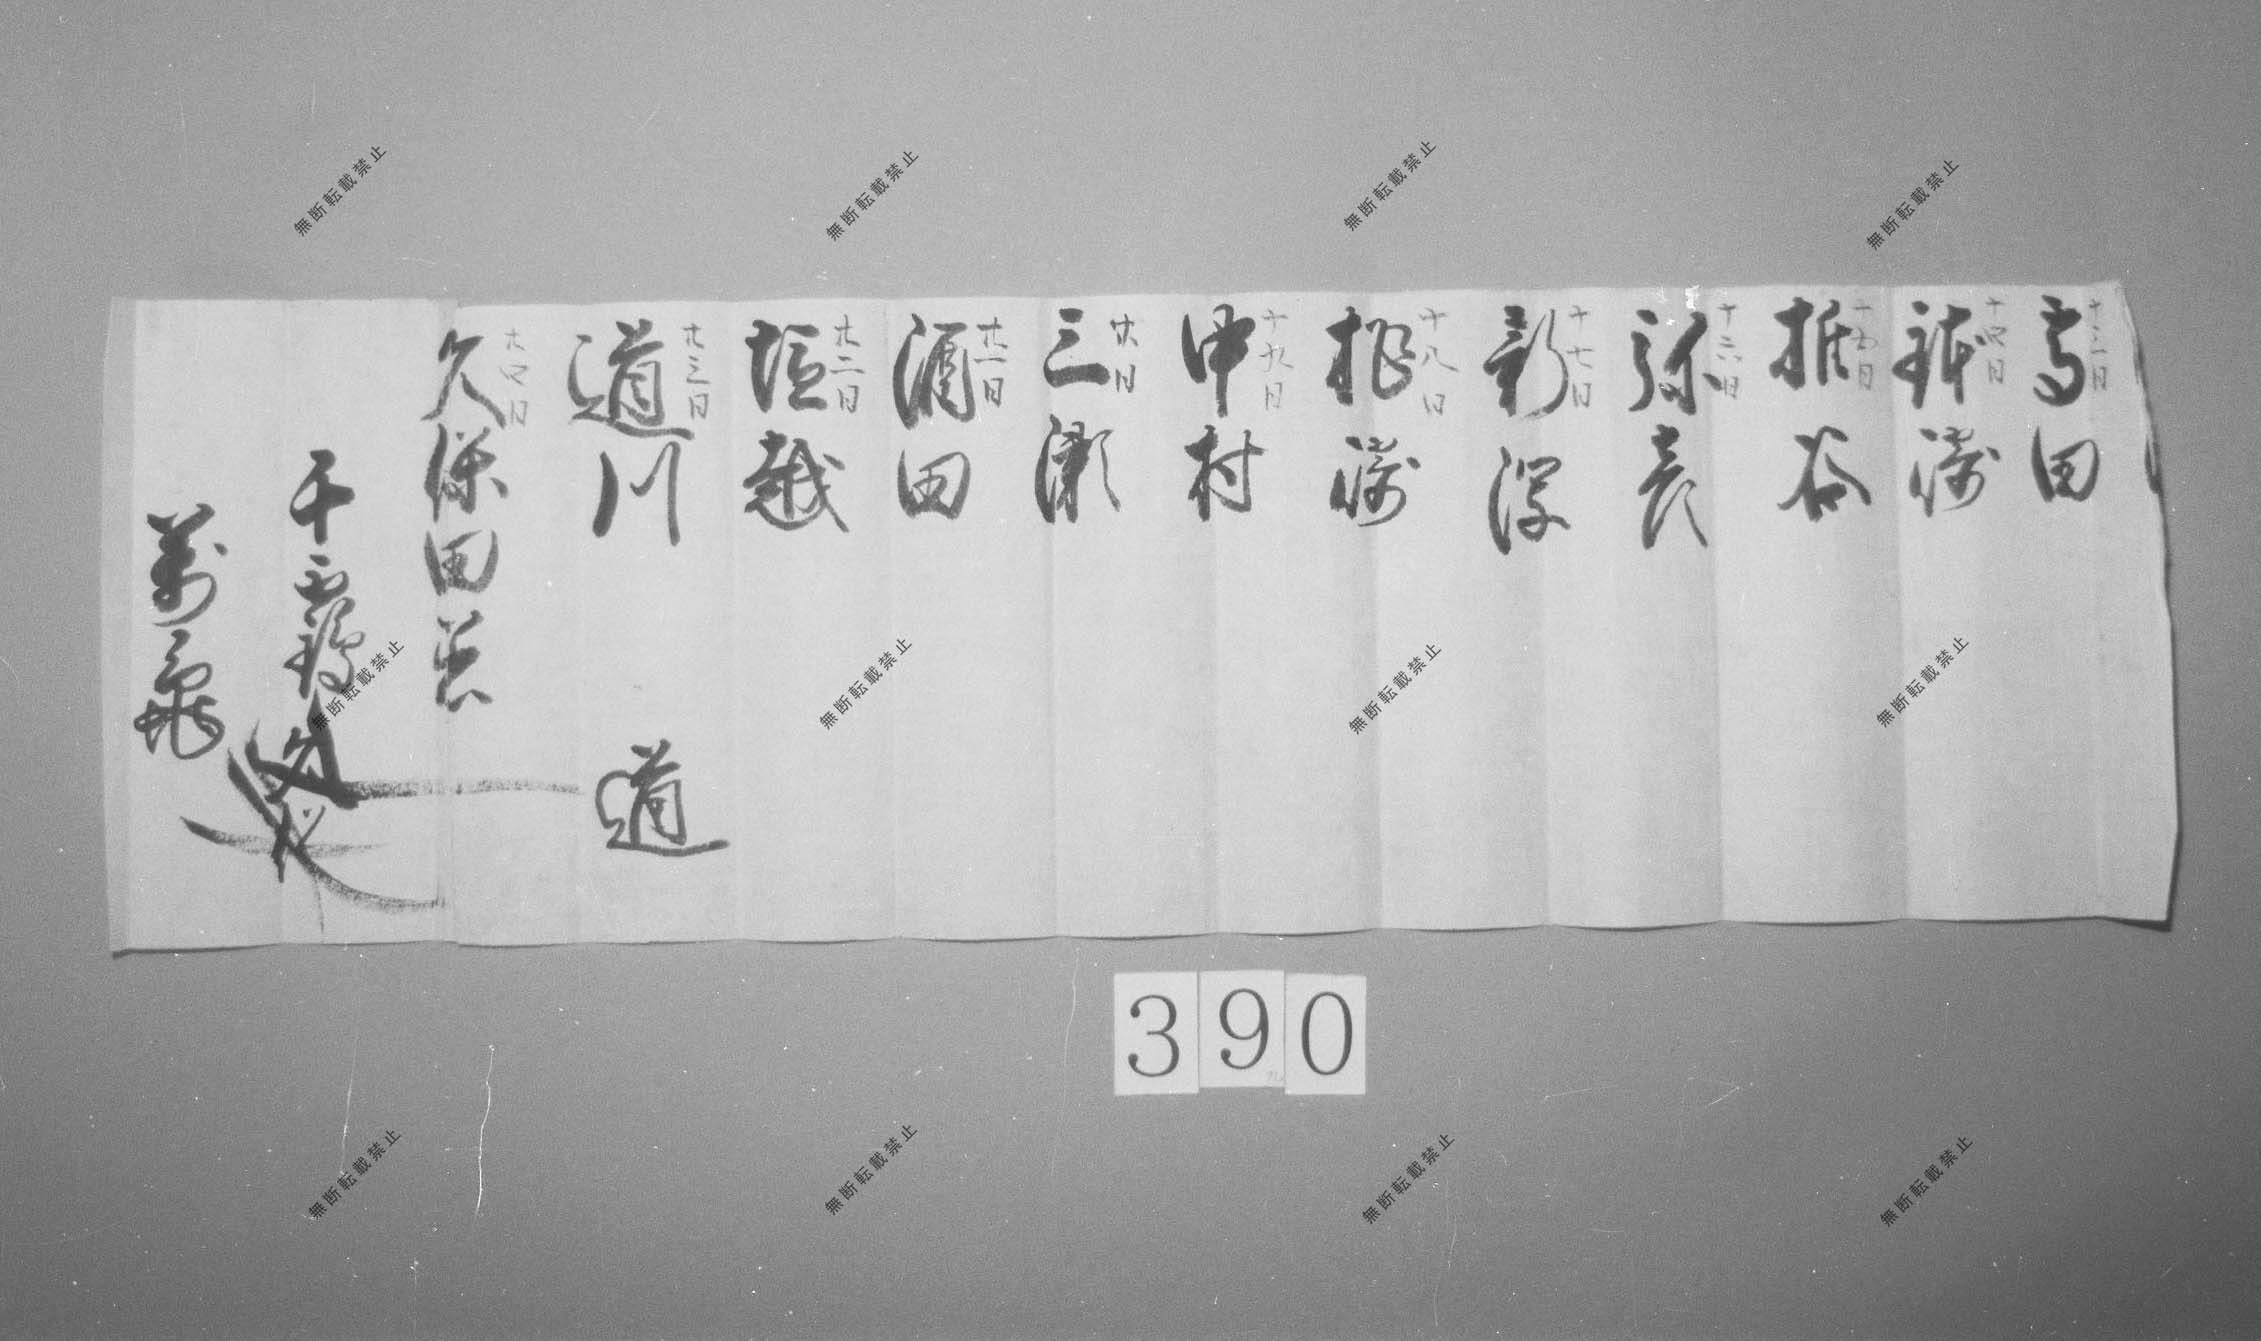 十三日
高田
十四日
鉢崎
十五日
椎谷
十六日
弥彦
十七日
新潟
十八日
中村
十九日
廿日
三瀬
廿一日
酒田
廿二日
塩越
廿三日
道川
道
廿四日
久保田着
千鶴
萬亀
390
無断転載禁止
無断転載禁止
無断転載禁止
無断転載禁止
無断転載禁止
無断転載禁止
無断転載禁止
無断転載禁止
無断転載禁止
無断転載禁止
無断転載禁止
無断転載禁止